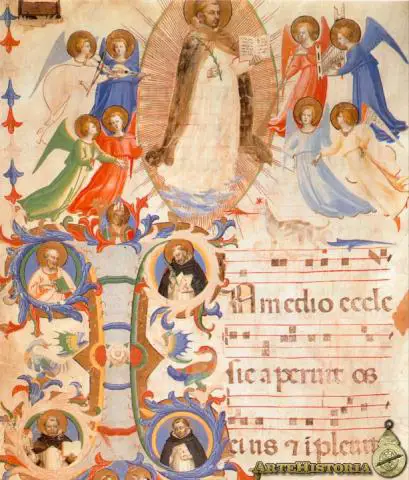 IN medio eccle
sie aperuit os
eius ⁊ ipleuit
ARTEHISTORIA